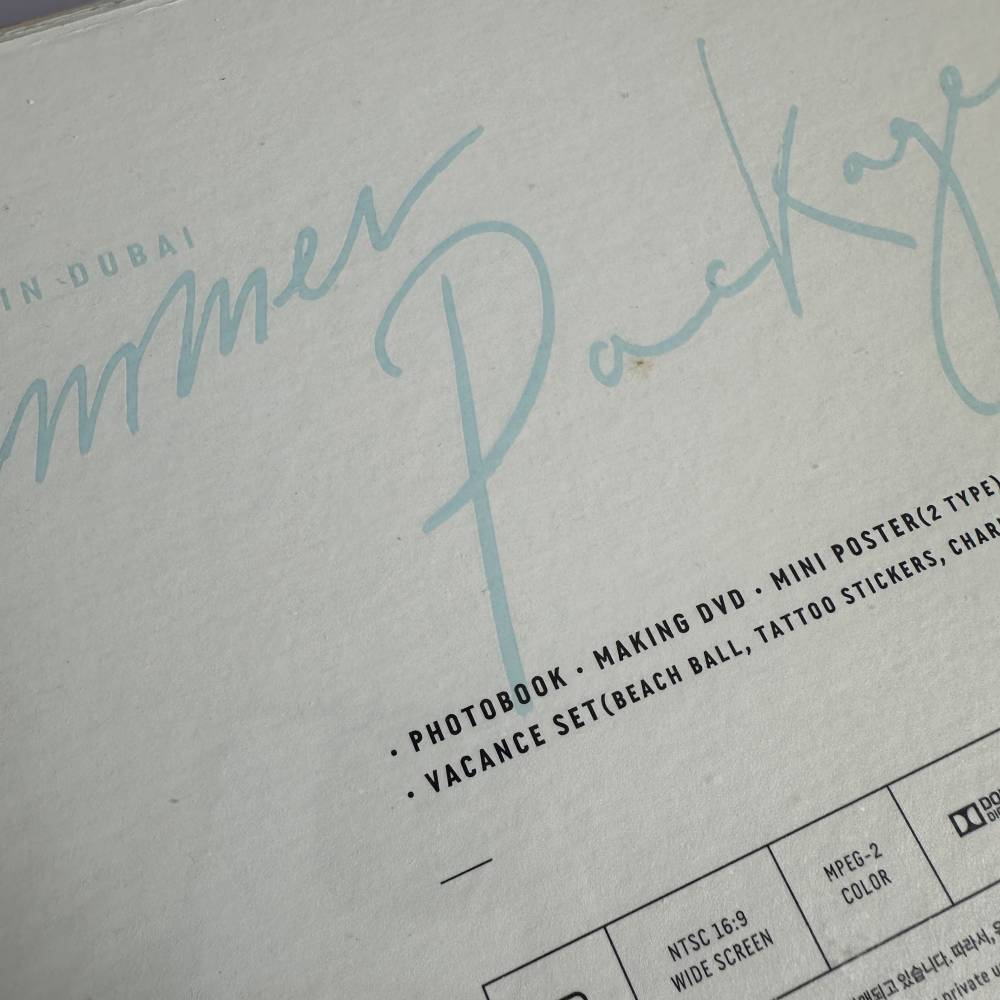 IN DUBAI
ummer Package
· PHOTOBOOK · MAKING DVD · MINI POSTER(2 TYPE)
· VACANCE SET(BEACH BALL, TATTOO STICKERS, CHAR
NTSC 16:9
WIDE SCREEN
MPEG-2
COLOR
DO
DIG
매되고 있습니다. 따라서,
private u